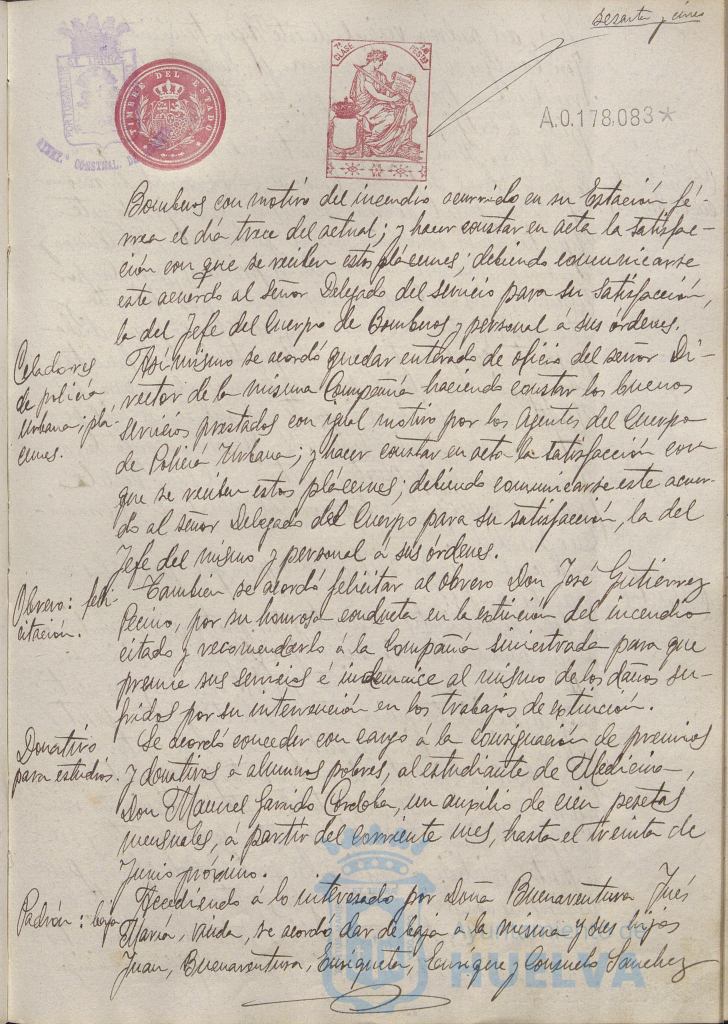 sesenta y cinco
7ª CLASE 1 PESETA
TIMBRE DEL ESTADO
A.0.178.083*
Bomberos con motivo del incendio ocurrido en su Estación fé-
rrea el día trece del actual; y hacer constar en acta la satisfac-
ción con que se reciben estos plácemes; debiendo comunicarse
este acuerdo al señor Delegado del servicio para su satisfacción,
la del Jefe del Cuerpo de Bomberos y personal á sus órdenes.
Celadores
de policía
Urbana; plá-
cemes.
Así mismo se acordó quedar enterado de oficio del señor Di-
rector de la misma Compañía haciendo constar los buenos
servicios prestados con igual motivo por los Agentes del Cuerpo
de Policía Urbana; y hacer constar en acta la satisfacción con
que se reciben estos plácemes; debiendo comunicarse este acuer-
do al señor Delegado del Cuerpo para su satisfacción, la del
Jefe del mismo y personal á sus órdenes.
Obrero: feli-
citación.
También se acordó felicitar al obrero Don José Gutiérrez
Pecino, por su honrosa conducta en la extinción del incendio
citado y recomendarlo á la Compañía siniestrada para que
premie sus servicios é indemnice al mismo de los daños su-
fridos por su intervención en los trabajos de extinción.
Donativo
para estudios.
Se acordó conceder con cargo á la consignación de premios
y donativos á alumnos pobres, al estudiante de Medicina,
Don Manuel Garrido Córdoba, un auxilio de cien pesetas
mensuales, á partir del corriente mes, hasta el treinta de
Junio próximo.
Padrón: baja
Accediendo á lo interesado por Doña Buenaventura Inés
María, viuda, se acordó dar de baja á la misma y sus hijos
Juan, Buenaventura, Enriqueta, Enrique y Consuelo Sánchez
Ayuntamiento de
HUELVA